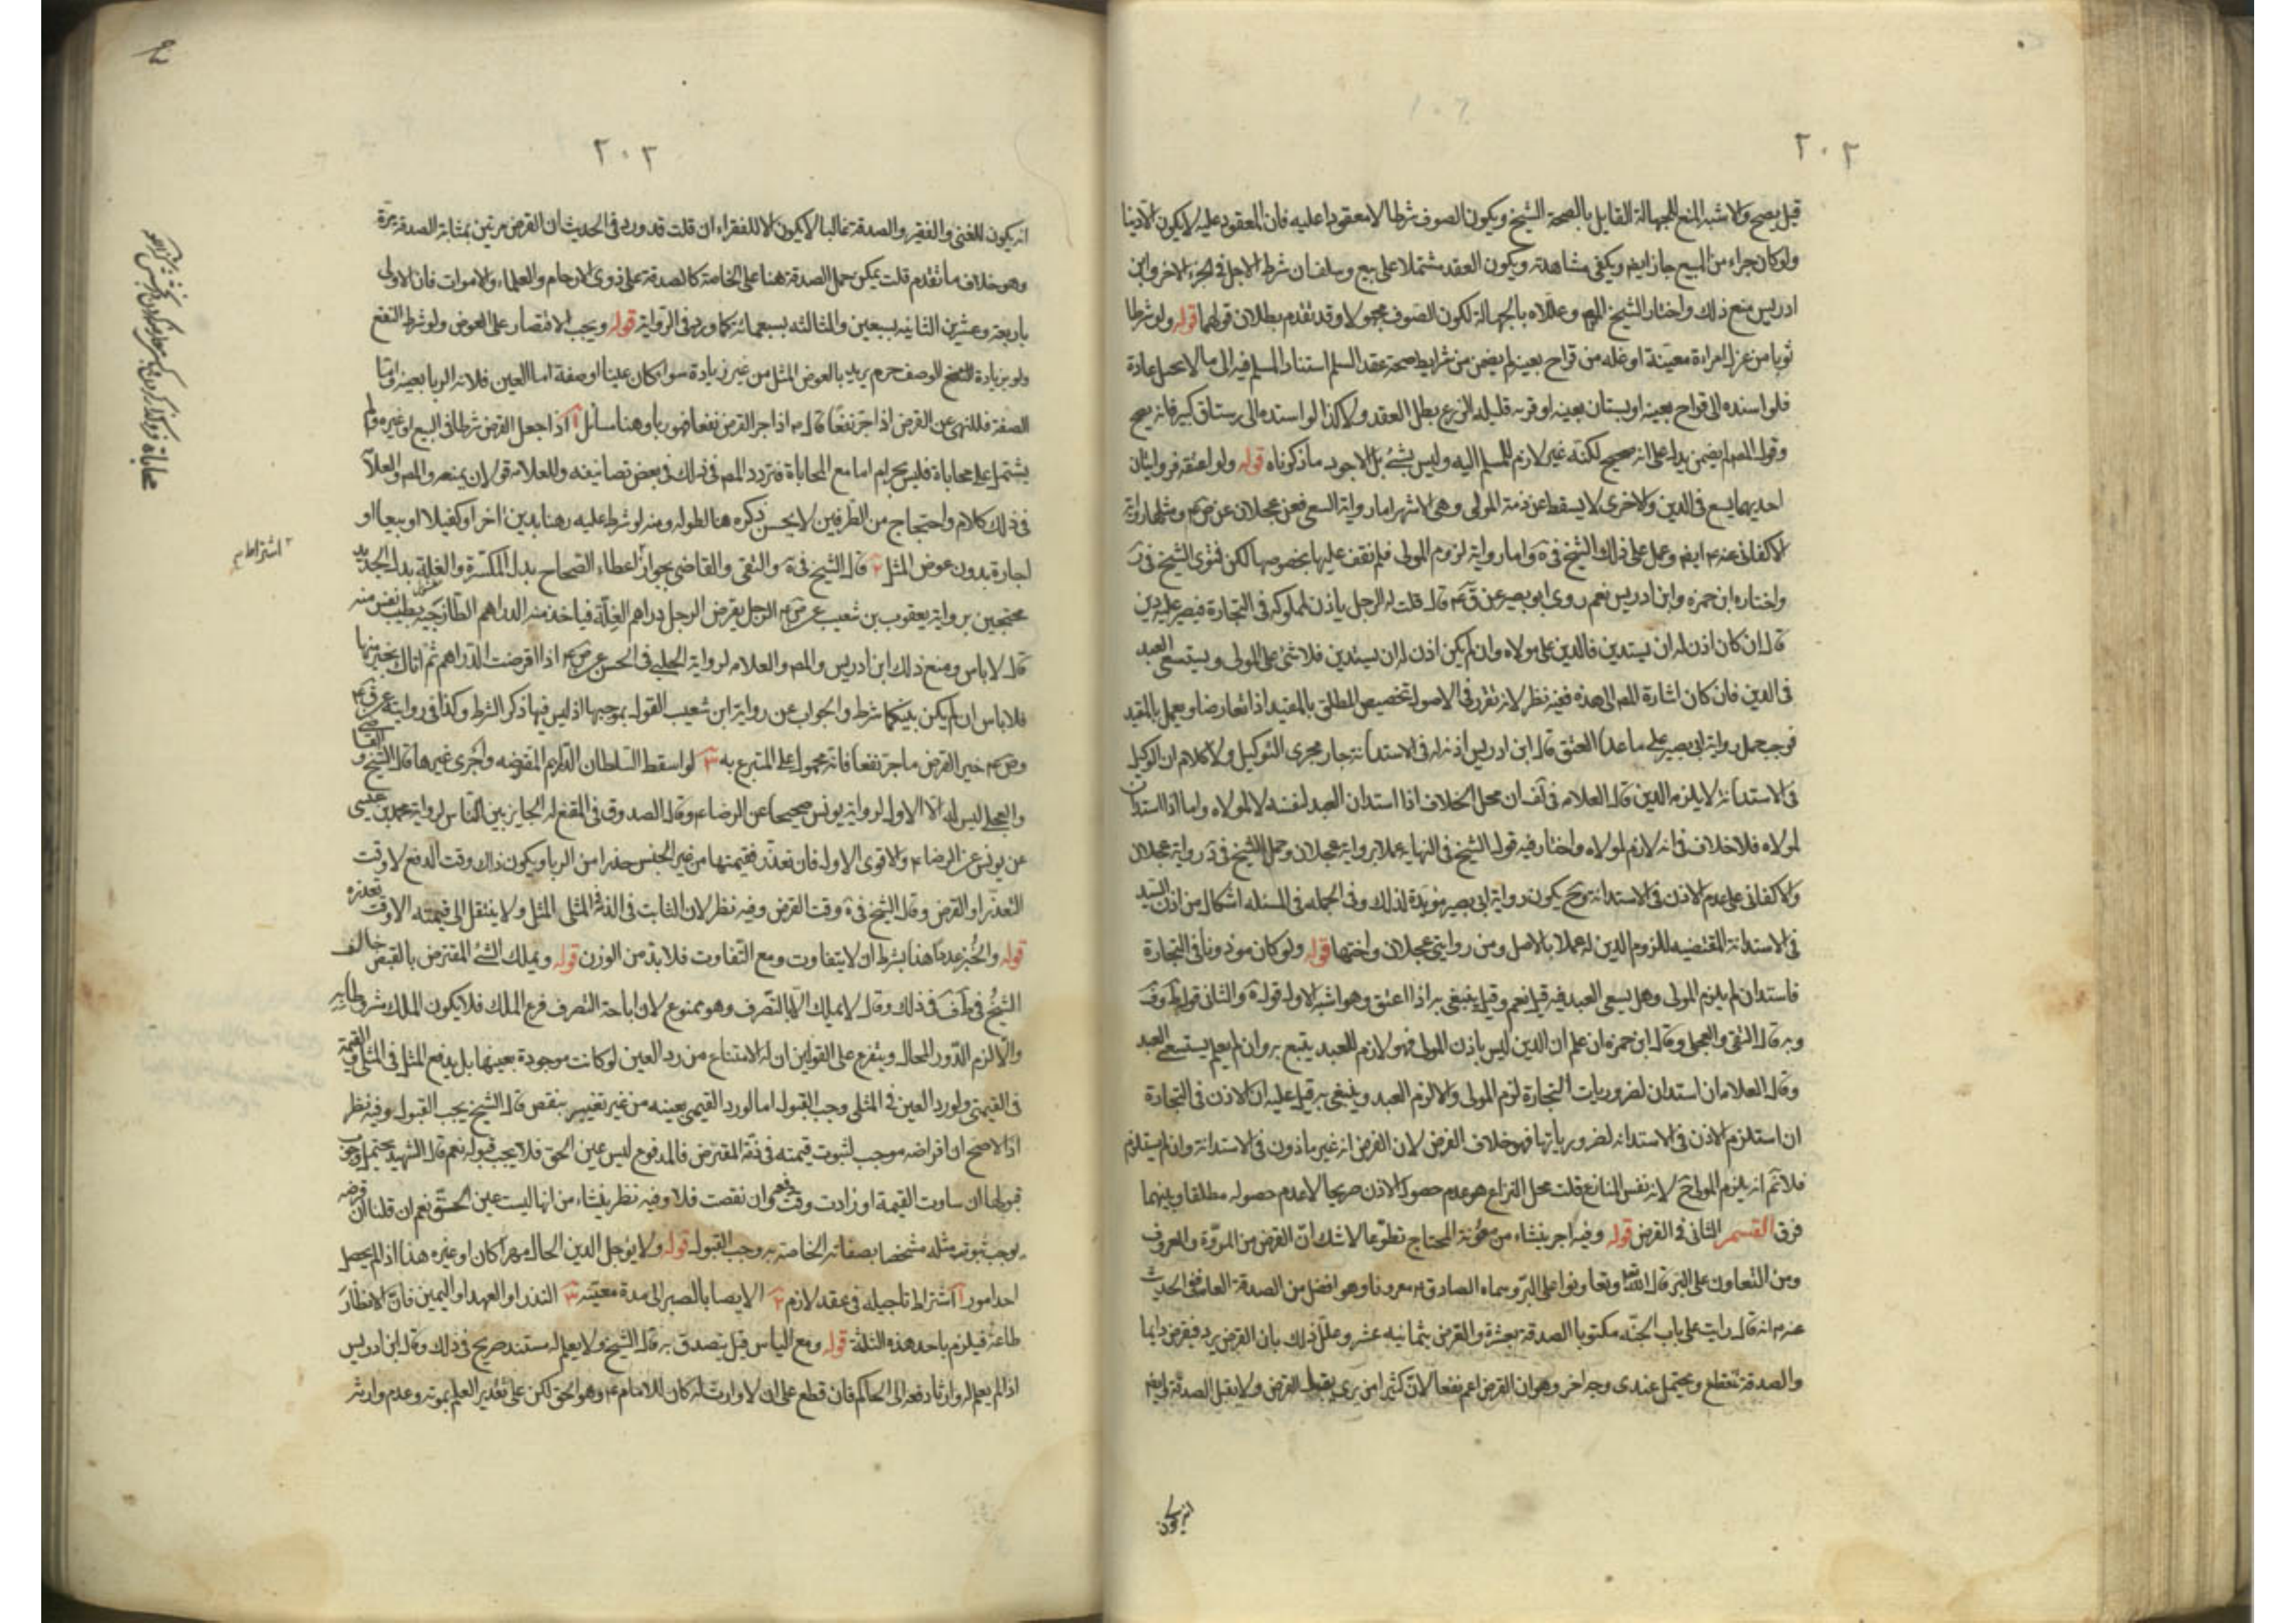 ٢٠٢
قيل يصح والاشبه المنع للجهالة القايل بالصحة الشيخ ويكون الصوف شرطا لا معقودا عليه فان المعقود عليه لا يكون الا دينا
ولو كان جزاء من المبيع جاز ايضا ويكفى مشاهدته ويكون العقد مشتملا على بيع وسلف ان شرط الاجل فى الجزء الاخر وابن
ادريس منع ذلك واختار الشيخ المص وعللاه بالجهالة لكون الصوف مجهولا وقد تقدم بطلان قولهما قوله ولو شرطا
ثوبا من غزل امراءة معينة او غله من قراح بعينه لم يضمن من شرايط صحة عقد السلم استناد المسلم فيه الى ما لا يحصل عادة
فلو اسنده الى قراح بعينه او بستان بعينه او قريه قليلة الزرع بطل العقد ولا كذا لو اسنده الى رستاق كبير فانه يصح
وقول المص لم يضمن يدل على انه صحيح لكنه غير لازم للمسلم اليه وليس بشئ بل الاجود ما ذكرناه قوله ولو اعتقه فروايتان
احديهما يسع فى الدين والاخرى لا يسقط عن ذمة المولى وهى الاشهر اما رواية السعى فعن عجلان عن ص م ومثلها رواية
الاكفانى عنه م ايضا وعمل على ذلك الشيخ فى ة واما رواية لزوم المولى فلم نقف عليها بخصوصها لكن فتوى الشيخ فى ر
واختاره ابن حمزه وابن ادريس نعم روى ابو بصير عن ق م قال قلت له الرجل ياذن لمملوكه فى التجارة فيصير عليه دين
قال ان كان اذن له ان يستدين فالدين على مولاه وان لم يكن اذن له ان يستدين فلا شئ على المولى ويستسعى العبد
فى الدين فان كان اشارة المص الى هذه ففيه نظر لانه تقرر فى الاصول تخصيص المطلق بالمقيد اذا تعارضا ويعمل بالمقيد
فوجب حمل رواية ابى بصير على ما عدا العتق قال ابن ادريس اذنه له فى الاستدانة جار مجرى التوكيل ولا كلام ان الوكيل
فى الاستدانة لا يلزمه الدين قال العلامه فى لف ان محل الخلاف اذا استدان العبد لنفسه لا لمولاه واما اذا استدان
لمولاه فلا خلاف فى انه لازم لمولاه واختار فيه قول الشيخ فى النهايه عملا برواية عجلان وحمل الشيخ فى ر رواية عجلان
والاكفانى على عدم الاذن فى الاستدانة وح يكون رواية ابى بصير مويدة لذلك وفى الجمله فى المسئله اشكال من اذن السيد
فى الاستدانة المقتضيه للزوم الدين له عملا بالاصل ومن روايتى عجلان واختها قوله ولو كان موذونا فى التجارة
فاستدان لم يلزم المولى وهل يسعى العبد فيه قيل نعم وقيل ينبغى به اذا اعتق وهو اشبه الاول قوله ة والثانى قوله ط وف
وبه قال التقى والعجلى وقال ابن حمزه ان علم ان الدين ليس باذن المولى فهو لازم للعبد يتبع به وان لم يعلم يستسعى العبد
وقال العلامه ان استدان لضروريات التجارة لزم المولى والا لزم العبد وينبغى به قيل عليه ان الاذن فى التجارة
ان استلزم الاذن فى الاستدانه لضرورياتها فهو خلاف الفرض لان الفرض انه غير ماذون فى الاستدانة وان لم يستلزم
فلا ثم انه يلزم المولى ح لانه نفس النزاع قلت محل النزاع هو عدم حصول الاذن صريحا لا عدم حصوله مطلقا وبينهما
فرق القسم الثانى فى القرض قوله وفيه اجر ينشاء من معونة المحتاج تطوعا لا شك ان القرض من المروة والمعروف
ومن التعاون على البر قال الله تعالى وتعاونوا على البر وسماه الصادق م معروفا وهو افضل من الصدقة العامه ففى الحديث
عنه م انه قال رايت على باب الجنه مكتوبا الصدقة بعشرة والقرض بثمانيه عشر وعلل ذلك بان القرض يرد فيقرض دايما
والصدقة تنقطع ويحتمل عندى وجه اخر وهو ان القرض اعم نفعا لان كثيرا من يرى يقبل القرض ولا يقبل الصدقة وايضا
انه يكون
٢٠٣
انه يكون للغنى والفقير والصدقة غالبا لا يكون الا للفقراء ان قلت قد ورد فى الحديث ان القرض مرتين بمثابة الصدقة مرة
وهو خلاف ما تقدم قلت يمكن حمل الصدقة هنا على الخاصة كالصدقة على ذوى الارحام والعلماء والاموات فان الاولى
باربعة وعشرين الثانيه بسبعين والثالثه بسبعمائة كما ورد فى الرواية قوله ويجب الاقتصار على العوض ولو شرط النفع
ولو بزيادة الوصف حرم يريد بالعوض المثل من غير زيادة سوا كان عينا او صفة اما العين فلانه الربا بعينه واما
الصفة فللنهى عن القرض اذا جر نفعا قال م اذا جر القرض نفعا فهو ربا وهنا مسائل آ اذا جعل القرض شرطا فى البيع او غيره ولم
يشتمل على محاباة فليس بحرام اما مع المحاباة فتردد المص فى ذلك فى بعض تصانيفه وللعلامه قولان بمنعه والمص والعلا
فى ذلك كلام واحتجاج من الطرفين لا يحسن ذكره هنا لطوله ومنه لو شرط عليه رهنا بدين اخر او كفيلا او بيعا او
اجارة بدون عوض المثل ٢ قال الشيخ فى ة والتقى والقاضى بجواز اعطاء الصحاح بدل المكسرة والغلة بدل الجديد
محتجين برواية يعقوب بن شعيب عن ص م الرجل يقرض الرجل دراهم الغلة فياخذ منه الدراهم الطازجية بطيب نفس منه
قال لا باس ومنع ذلك ابن ادريس والمص والعلامه لرواية الحلبى فى الحسن عن ص م اذا اقرضت الدراهم ثم اتاك بخير منها
فلا باس ان لم يكن بينكما شرط والجواب عن رواية ابن شعيب القول بموجبها اذ ليس فيها ذكر الشرط وكذا فى رواية عن ق م
وص م خير القرض ما جر نفعا فانه محمول على المتبرع به ٣ لو اسقط السلطان الدراهم المقترضه واجرى غيرها قال الشيخ والقاضى
والعجلى ليس له الا الاول لرواية يونس صحيحا عن الرضا م وقال الصدوق فى المقنع له الجايز بين الناس لرواية محمد بن عيسى
عن يونس عن الرضا م والاقوى الاول فان تعذر فقيمتها من غير الجنس حذرا من الربا ويكون ذلك وقت الدفع لا وقت
التعذر او القرض وقال الشيخ فى ة وقت القرض وفيه نظر لان الثابت فى الذمة المثلى المثل ولا ينتقل الى قيمته الا وقت تعذره
قوله والخبز عددا هذا بشرط ان لا يتفاوت ومع التفاوت فلا بد من الوزن قوله ويملك الشئ المقترض بالقبض خالف
الشيخ فى ط ف فى ذلك وقال لا يملك الا بالتصرف وهو ممنوع لان اباحة التصرف فرع الملك فلا يكون الملك مشروطا به
والا لزم الدور المحال ويتفرع على القولين ان له الامتناع من رد العين لو كانت موجودة بعينها بل يدفع المثل فى المثلى والقيمة
فى القيمى ولو رد العين فى المثلى وجب القبول اما لو رد القيمى بعينه من غير تغيير بنقص قال الشيخ يجب القبول وفيه نظر
اذ الاصح ان اقراضه موجب لثبوت قيمته فى ذمة المقترض فالمدفوع ليس عين الحق فلا يجب قبوله نعم قال الشهيد يحتمل وجوب
قبولها ان ساوت القيمة او زادت وقت دفعه وان نقصت فلا وفيه نظر ينشاء من انها ليست عين الحق نعم ان قلنا ان قرضه
يوجب ثبوت مثله مشخصا بصفاته الخاصة به وجب القبول قوله ولا يؤجل الدين الحال مهرا كان او غيره هذا اذا لم يحصل
احد امور آ اشتراط تاجيله فى عقد لازم ٢ الايصا بالصبر الى مدة معينه ٣ النذر او العهد او اليمين فان الانظار
طاعة فيلزم باحد هذه الثلثة قوله ومع الياس قيل يتصدق به قال الشيخ ولا يعلم له مستند صريح فى ذلك وقال ابن ادريس
اذا لم يعلم له وارثا دفعه الى الحاكم فان قطع على ان لا وارث له كان للامام م وهو الحق لكن على تقدير العلم بموته وعدم وارثه
اشتراط
محاباة